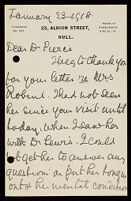 January 23-1918.
Telephone
23, ALBION STREET,
HULL.
Hours of
Consultation
Dear Dr Pierce
I beg to thank you
for your letter re Mrs
Robins. I had not seen
her since your visit until
today. When I saw her
with Dr Lewis. I could
not get her to answer any
question or put her tongue
out & her mental condition